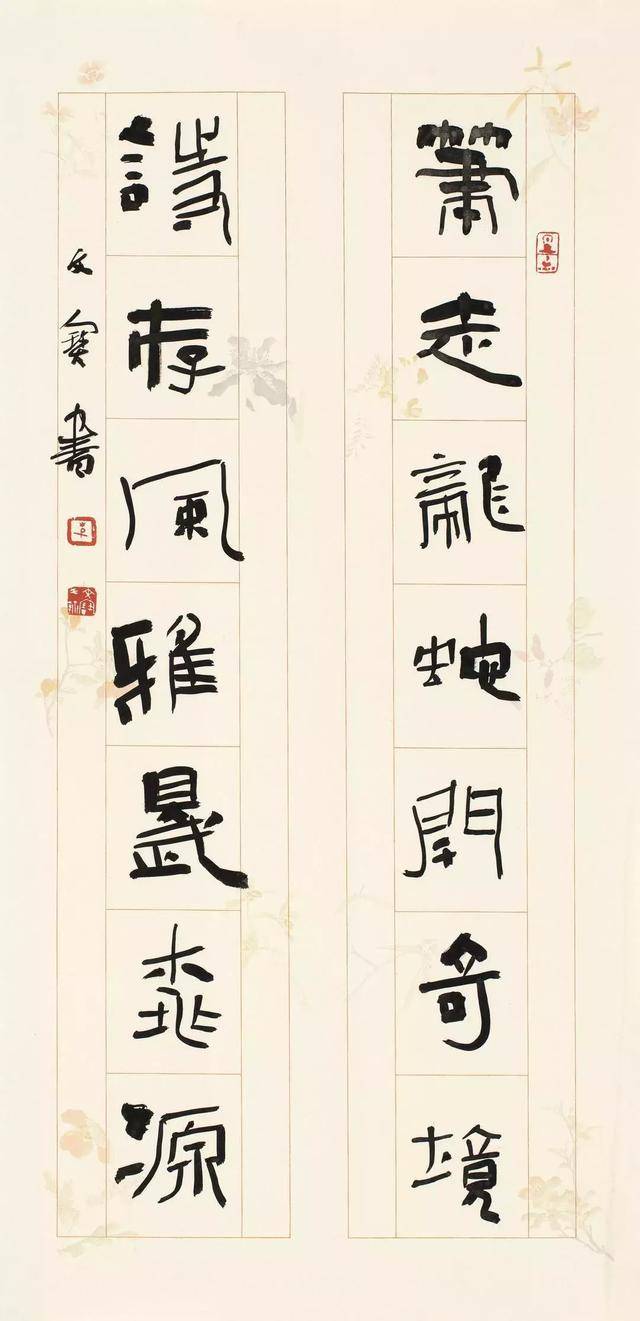 筆走龍蛇開奇境
詩存風雅桃源
文寶書